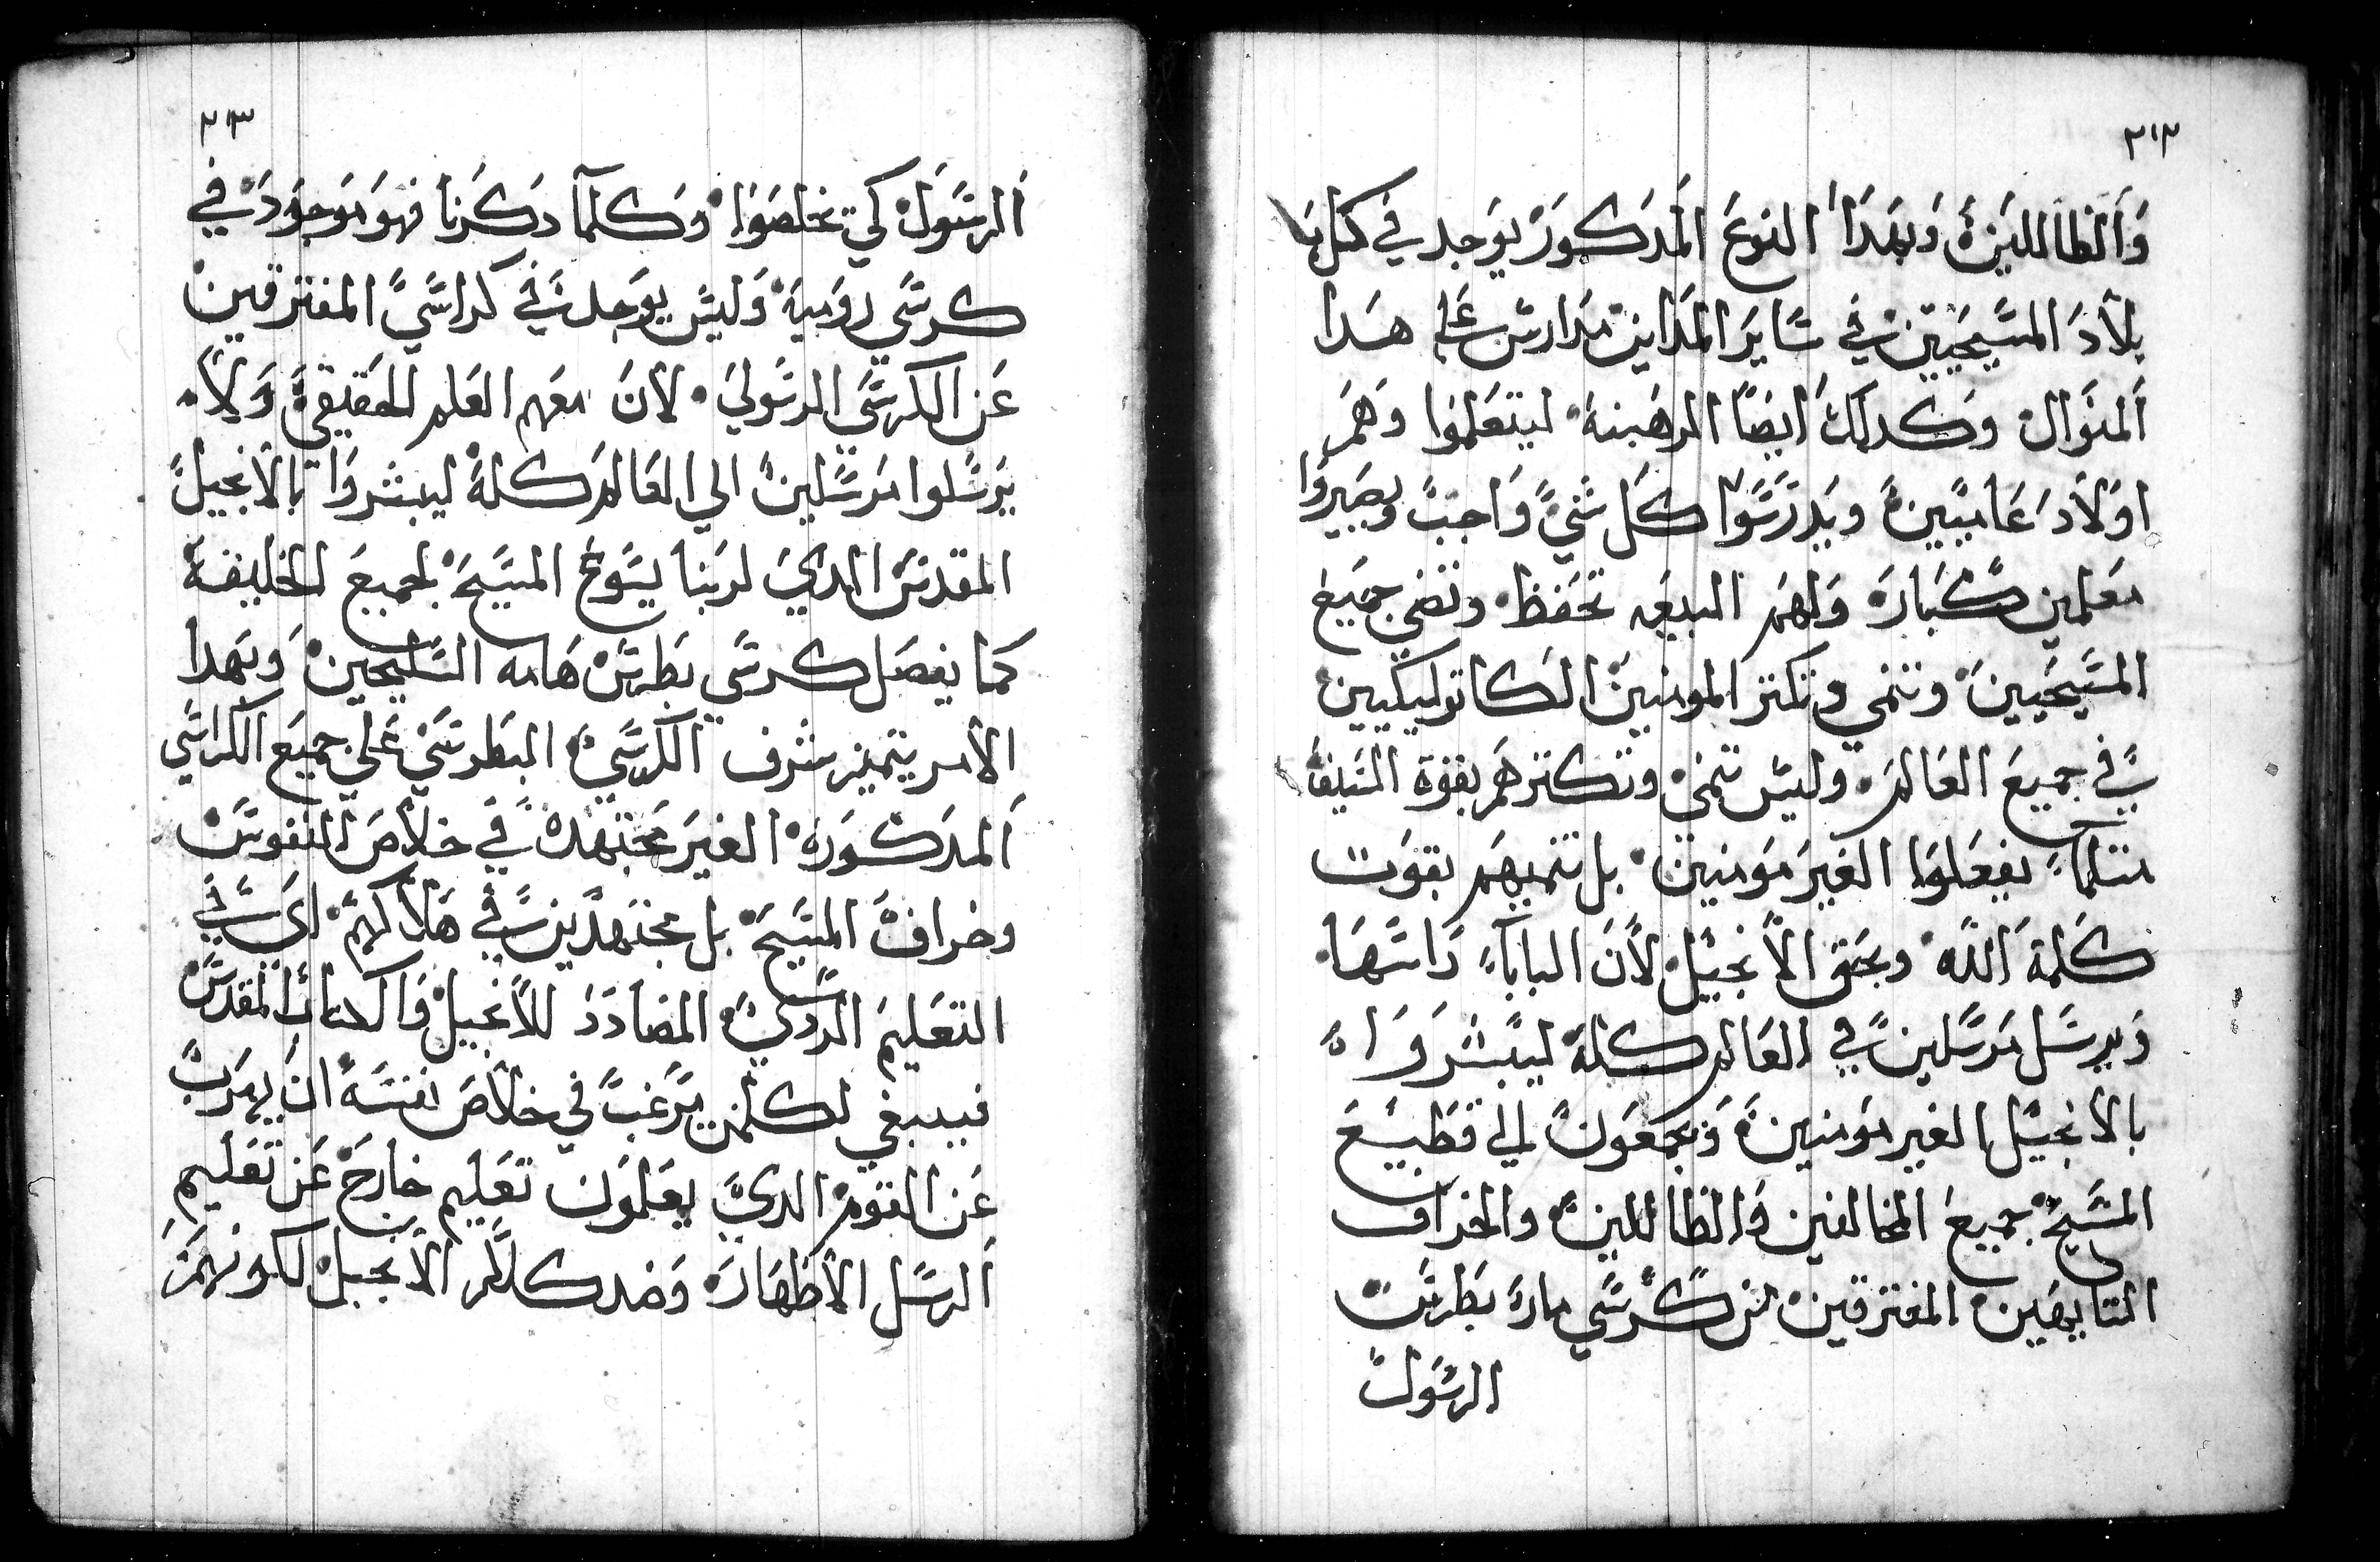 ٢١٢
والظاللين وبهدا النوع المدكور يوجد في كل
بلاد المسيحيين في ساير المداين مدارس على هدا
المنوال وكدلك ايضا الرهبنة ليتعلموا وهم
اولاد عاميين ويدرسوا كل شي واجب ويصيروا
معلمين كبار ولهم البيعه تحفظ وتضي جميع
المسيحيين وتنمي وتكتر المومنين الكاتوليكيين
في جميع العالم وليس تنمي وتكترهم بقوة السيف
متلما يفعلوا الغير مومنين بل تنميهم بقوت
كلمة الله وبحق الانجيل لان البابا داتها
ويرسل مرسلين في العالم كلة ليبشروا
بالانجيل الغير مومنين ويجمعون الي قطيع
المسيح جميع المخالفين والظاللين والخراف
التايهين المفترقين من كرسي مار بطرس
الرسول
٢١٣
الرسول كي تخلصوا وكلما دكرنا فهو موجود في
كرسي رومية وليس يوجد في كراسي المفترقين
عن الكرسي الرسولي لان معهم العلم الحقيقي ولا
يرسلوا مرسلين الي العالم كلة ليبشروا بالانجيل
المقدس الدي لربنا يسوع المسيح لجميع الخليقة
كما يفصل كرسي بطرس هامه السليحين وبهدا
الامر يتميز شرف الكرسي البطرسي علي جميع الكراسي
المدكورة الغير مجتهدة في خلاص النفوس
وخراف المسيح بل مجتهدين في هلاكهم اي في
التعليم الردي المضادد للانجيل والكتاب المقدس
فيبنغي لكلمن يرغب في خلاص نفسة ان يهرب
عن القوم الدي يعلمون تعليم خارج عن تعليم
الرسل الاظهار وضد كلام الانجيل لكونهم